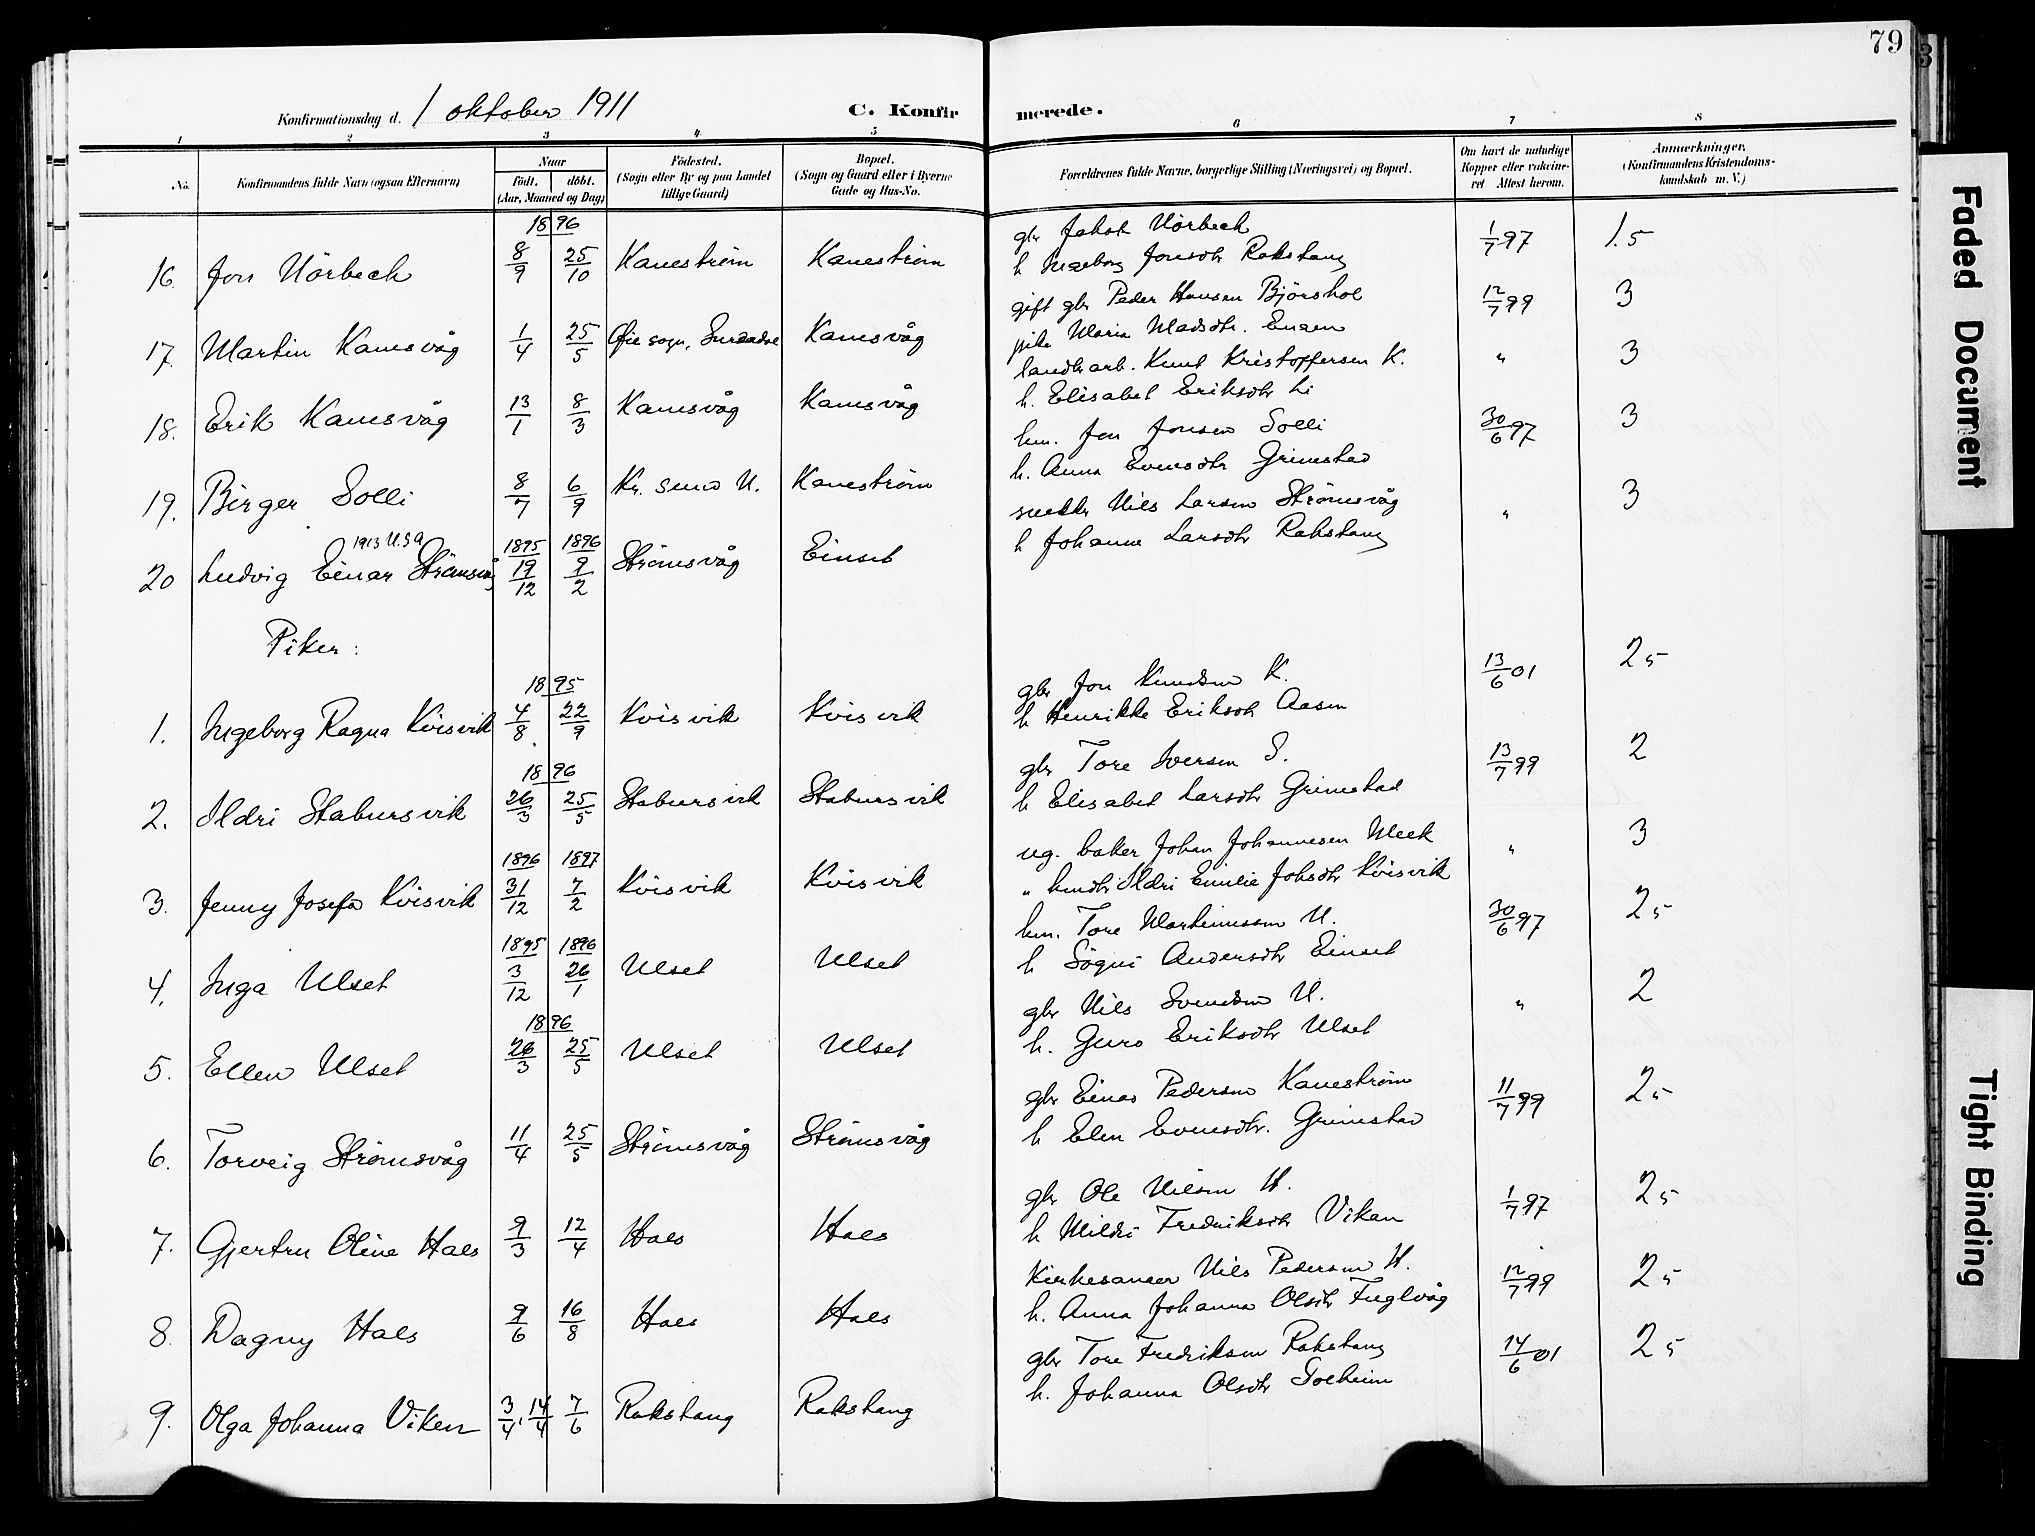 79
Konfirmationsdag d. 1 oktober 1911 C. Konfirmerede.
1 2 3 4 5 6 7 8
No. Konfirmandens fulde Navn (ogsaa Efternavn) Naar födt. döbt. (Aar, Maaned og Dag) Födested. (Sogn eller By og paa Landet tillige Gaard) Bopæl. (Sogn og Gaard eller i Byerne Gade og Hus-No. Forældrenes fulde Navne, borgerlige Stilling (Næringsvei) og Bopæl. Om havt de naturlige Kopper eller vakcineret Attest herom. Anmærkninger. (Konfirmandens Kristendomskundskab m. V.)
1896
gbr Jakob Nörbech 1/7 97 1.5
16. Jon Nörbech 8/9 25/10 Kanestrøm Kanestrøm h Ingeborg Jonsdtr Rakstang
gift gbr Peder Hansen Bjørshol 12/7 99 3
17. Martin Kamsvåg 1/4 25/5 Øie sogn, Surendal Kamsvåg pike Maria Madsdtr. Engen
landbr arb. Knut Kristoffersen K. " 3
18. Erik Kamsvåg 13/1 8/3 Kamsvåg Kamsvåg h. Elisabet Eriksdtr Li
hm. Jon Jonsen Solli 30/6 97 3
19. Birger Solli 8/7 6/9 Kr. sund N. Kanestrøm h. Anna Evensdtr Grimstad
1913 USA 1895 1896 snekker Nils Larsen Strømsvåg " 3
20 Ludvig Einar Strømsvåg 19/12 9/2 Strømsvåg Einset h Johanne Larsdtr Rakstang
Piker:
1895 gbr Jon Knudsen K. 13/6 01 25
1. Ingeborg Ragna Kvisvik 4/8 22/9 Kvisvik Kvisvik h Henrikke Eriksdtr Aasen
1896 gbr Tore Iversen S. 13/7 99 2
2. Ildri Stabursvik 26/3 25/5 Stabursvik Stabursvik h Elisabet Larsdtr Grimstad
1896 1897 ug. baker Johan Johannesen Meek " 3
3. Jenny Josefa Kvisvik 31/12 7/2 Kvisvik Kvisvik " hmdtr Ildri Emilie Johsdtr Kvisvik
1895 1896 hm. Tore Martinussen U. 30/6 97 25
4. Inga Ulset 3/12 26/1 Ulset Ulset h Sögni Andersdtr Einset
1896 gbr Nils Svendsen U. " 2
5. Ellen Ulset 26/3 25/5 Ulset Ulset h. Guro Eriksdtr Ulset
gbr Einar Pedersen Kanestrøm 11/7 99 25
6. Torveig Strømsvåg 11/4 25/5 Strømsvåg Strømsvåg h Elen Evensdtr. Grimstad
gbr Ole Nilsen H. 1/7 97 25
7. Gjertru Oline Hals 9/3 12/4 Hals Hals h Mildri Fredriksdtr Vikan
Kirkesanger Nils Pedersen H. 12/7 99 25
8. Dagny Hals 9/6 16/8 Hals Hals h. Anna Johanna Olsdtr Fuglvåg
gbr Tore Fredriksen Rakstang 14/6 01 25
9. Olga Johanna Viken 3/4, 14/4 7/6 Rakstang Rakstang h. Johanna Olsdtr Solheim
Faded Document
Tight Binding